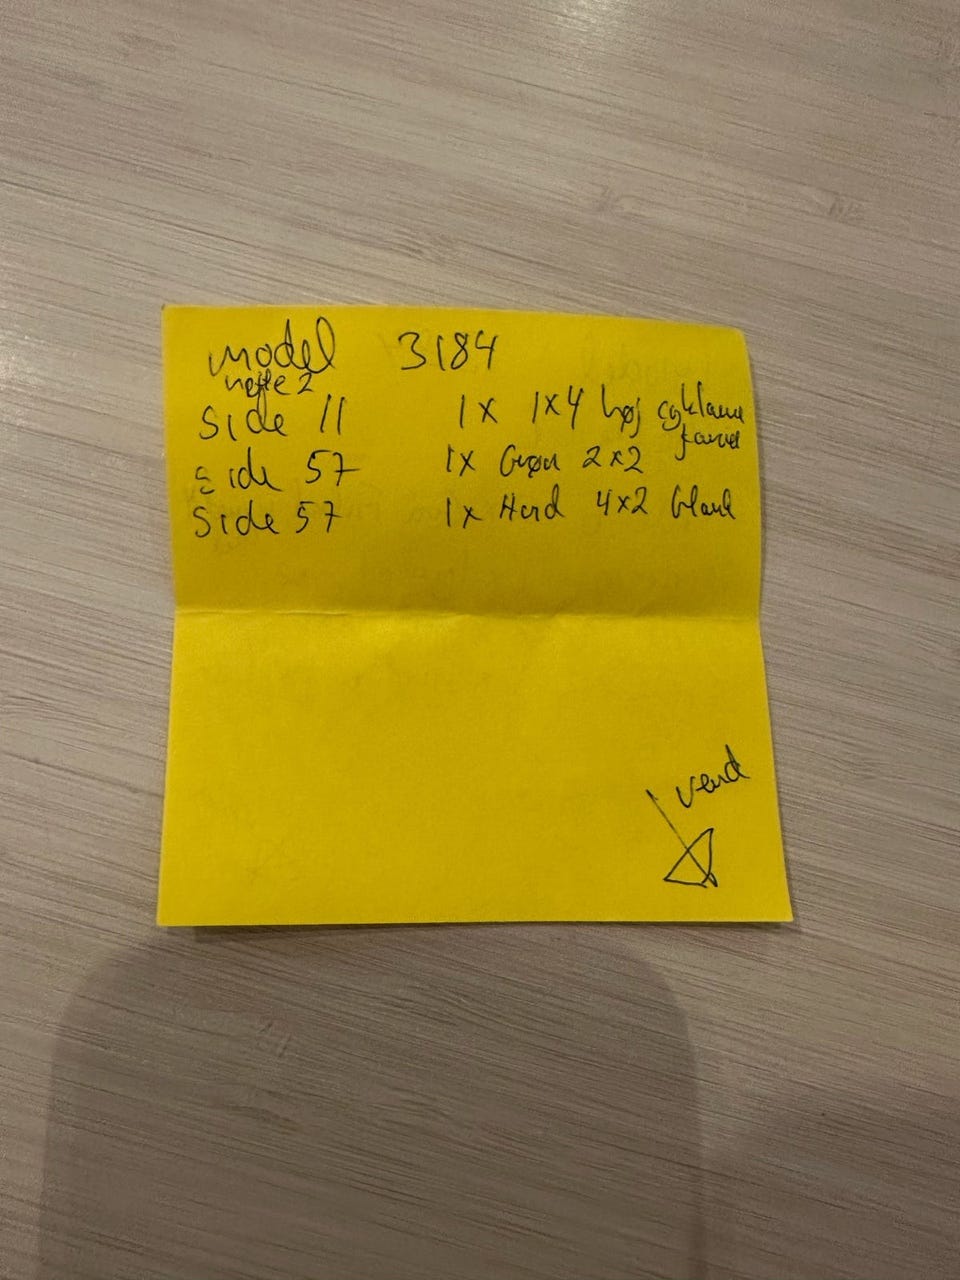 model 3184
hefte 2
Side 11 1x 1x4 høj cyklame
farve
side 57 1x Grøn 2x2
Side 57 1x Hvid 4x2 blank
vend